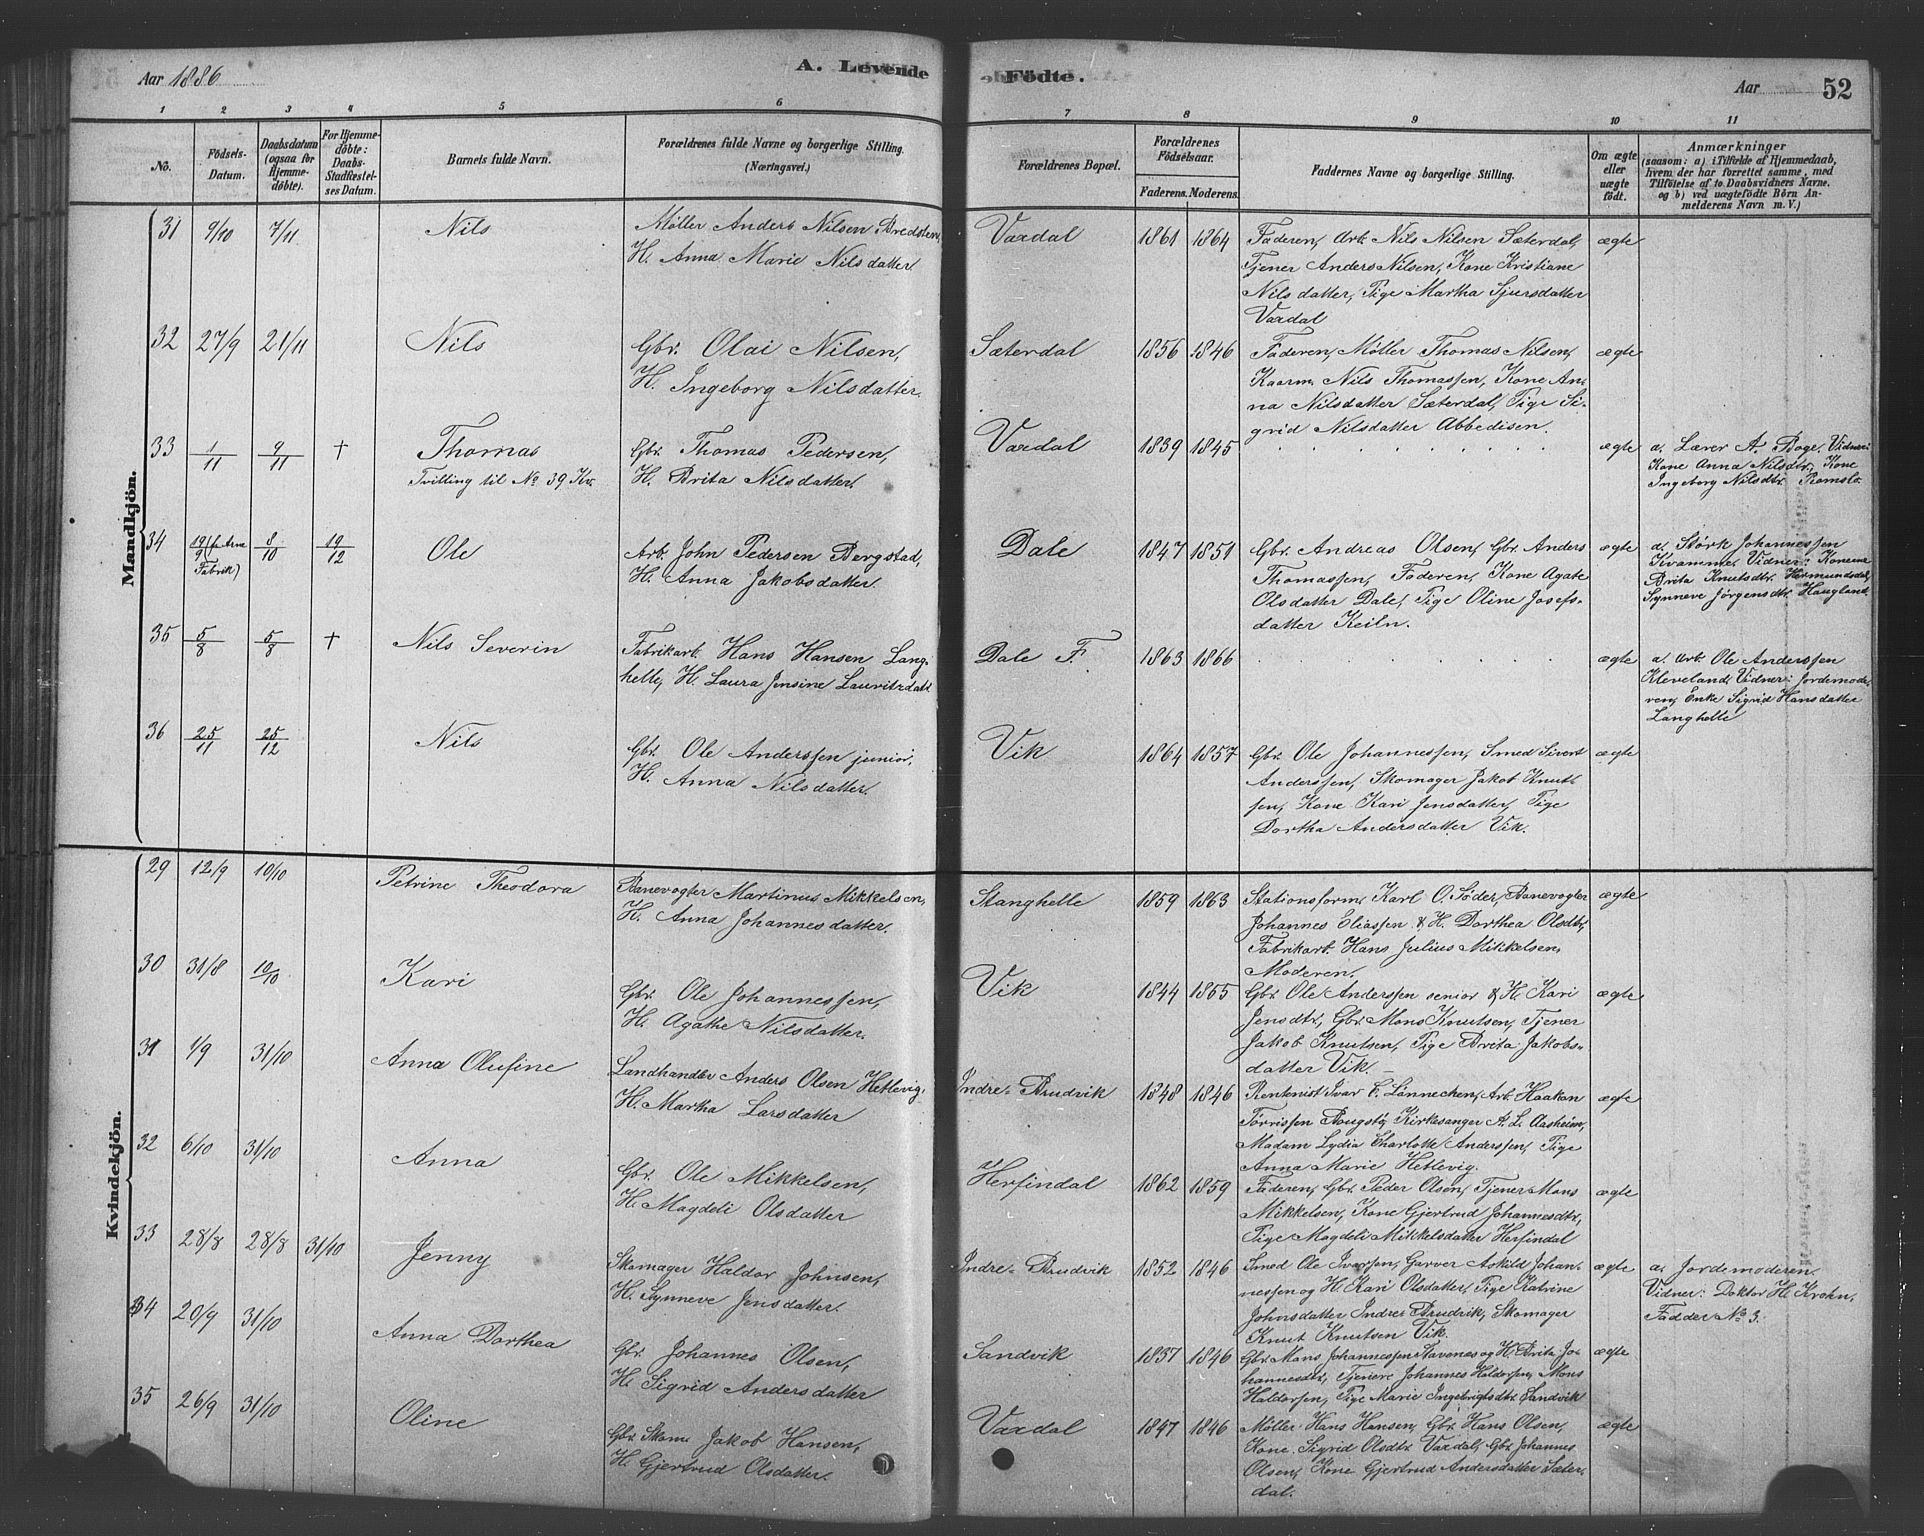 Aar 1886
A. Levende
Födte.
Aar
52
1 2 3 4 5 6 7 8 9 10 11
No.
Födsels-Datum.
Daabsdatum (ogsaa for Hjemmedöbte).
For Hjemmedöbte: Daabs-Stadfæstelses Datum.
Barnets fulde Navn.
Forældrenes fulde Navne og borgerlige Stilling. (Næringsvei.)
Forældrenes Bopæl.
Forældrenes Födselsaar.
Faderens. Moderens.
Faddernes Navne og borgerlige Stilling.
Om ægte eller uægte födt.
Anmærkninger
(saasom: a) i Tilfælde af Hjemmedaab, hvem der har forrettet samme, med Tilföielse af to Daabsvidners Navne. og b) ved uægtefödte Börn Anmelderens Navn m. V.)
Mandkjön.
31 9/10 7/11 Nils
Møller Anders Nilsen Bredsten,
H. Anna Marie Nilsdatter.
Vaxdal 1861 1864
Faderen, Arb. Nils Nilsen Sæterdal,
Tjener Anders Nilsen, Kone Kristiane
Nilsdatter, Pige Martha Sjursdatter
Vaxdal
ægte
32 27/9 21/11 Nils
Gbr. Olai Nilsen,
H. Ingeborg Nilsdatter.
Sæterdal 1856 1846
Faderen, Møller Thomas Nilsen,
Kaarm. Nils Thomassen, Kone An-
na Nilsdatter Sæterdal, Pige Si-
grid Nilsdatter Abbedisen.
ægte
33 1/11 9/11 † Thomas
Tvilling til No 39 Kv.
Gbr. Thomas Pedersen,
H. Brita Nilsdatter.
Vaxdal 1839 1845
ægte
a. Lærer A. Boge. Vidner:
Kone Anna Nilsdtr., Kone
Ingeborg Nilsdtr. Romslo.
34 19/9 (f. Arne Fabrik) 8/10 19/12 Ole
Arb. John Pedersen Bergstad,
H. Anna Jakobsdatter.
Dale 1847 1851
Gbr. Andreas Olsen, Gbr. Anders
Thomassen, Faderen, Kone Agate
Olsdatter Dale, Pige Oline Josefs-
datter Keiln.
ægte
a. Størk Johannessen
Kvamme. Vidner: Konerne
Brita Knutsdtr. Hermundsdal,
Synneve Jørgensdtr. Haugland.
35 5/8 5/8 † Nils Severin
Fabrikarb. Hans Hansen Lang-
helle, H. Laura Jensine Lauritzdatt.
Dale F. 1863 1866
ægte
a. Arb. Ole Anderssen
Kleveland. Vidner: Jordemode-
ren, Enke Sigrid Hansdatter
Langhelle
36 25/11 25/12 Nils
Gbr. Ole Anderssen junior,
H. Anna Nilsdatter.
Vik 1864 1857
Gbr. Ole Johannessen, Smed Sivert
Anderssen, Skomager Jakob Knut-
sen, Kone Kari Jensdatter, Pige
Dortha Andersdatter Vik.
ægte
Kvindekjön.
29 12/9 10/10 Petrine Theodora
Banevogter Martinus Mikkelsen,
H. Anna Johannesdatter.
Stanghelle 1859 1863
Stationsform. Karl O. Söder, Banevogter
Johannes Eliassen & H. Dorthea Olsdtr,
Fabrikarb. Hans Julius Mikkelsen.
Moderen.
ægte
30 31/8 10/10 Kari
Gbr. Ole Johannessen,
H. Agathe Nilsdatter.
Vik 1844 1855
Gbr. Ole Anderssen senior & H. Kari
Jensdtr, Gbr. Mons Knutsen, Tjener
Jakob Knutsen, Pige Brita Jakobs-
datter Vik.
ægte
31 1/9 31/10 Anna Olufine
Landhandler Anders Olsen Hetlevig,
H. Martha Larsdatter
Indre-Brudvik 1848 1846
Rentenist Ivar F. Lønnechen, Arb. Haakon
Torrissen Bougstø, Kirkesanger A. L. Aasheim,
Madam Lydia Charlotte Anderssen, Pige
Anna Marie Hetlevig.
ægte
32 6/10 31/10 Anna
Gbr. Ole Mikkelsen,
H. Magdeli Olsdatter
Herfindal 1862 1859
Faderen, Gbr. Peder Olsen, Tjener Mons
Mikkelsen, Kone Gjertrud Johannesdtr,
Pige Magdeli Mikkelsdatter Herfindal
ægte
33 28/8 28/8 31/10 Jenny
Skomager Haldor Johnsen,
H. Synneve Jensdatter.
Indre-Brudvik 1852 1846
Smed Ole Ivarsen, Garver Askild Johan-
nessen og H. Kari Olsdatter, Pige Katrine
Johnsdatter Indre Brudvik, Skomager
Knut Knutsen Vik.
ægte
a. Jordemoderen.
Vidner: Doktor H. Krohn,
Fadder No 3.
34 20/9 31/10 Anna Dorthea
Gbr. Johannes Olsen,
H. Sigrid Andersdatter
Sandvik 1837 1846
Gbr. Mons Johannessen Stavenes og H. Brita Jo-
hannesdtr, Tjenere Johannes Haldorsen, Mons
Haldorsen, Pige Marie Ingebrigtsdtr. Sandvik
ægte
35 26/9 31/10 Oline
Gbr. Skom. Jakob Hansen,
H. Gjertrud Olsdatter.
Vaxdal 1847 1846
Møller Hans Hansen, Gbr. Hans Olsen,
Kone Sigrid Olsdtr. Vaxdal, Gbr. Johannes
Olsen, Kone Gjertrud Andersdatter Sæter-
dal.
ægte